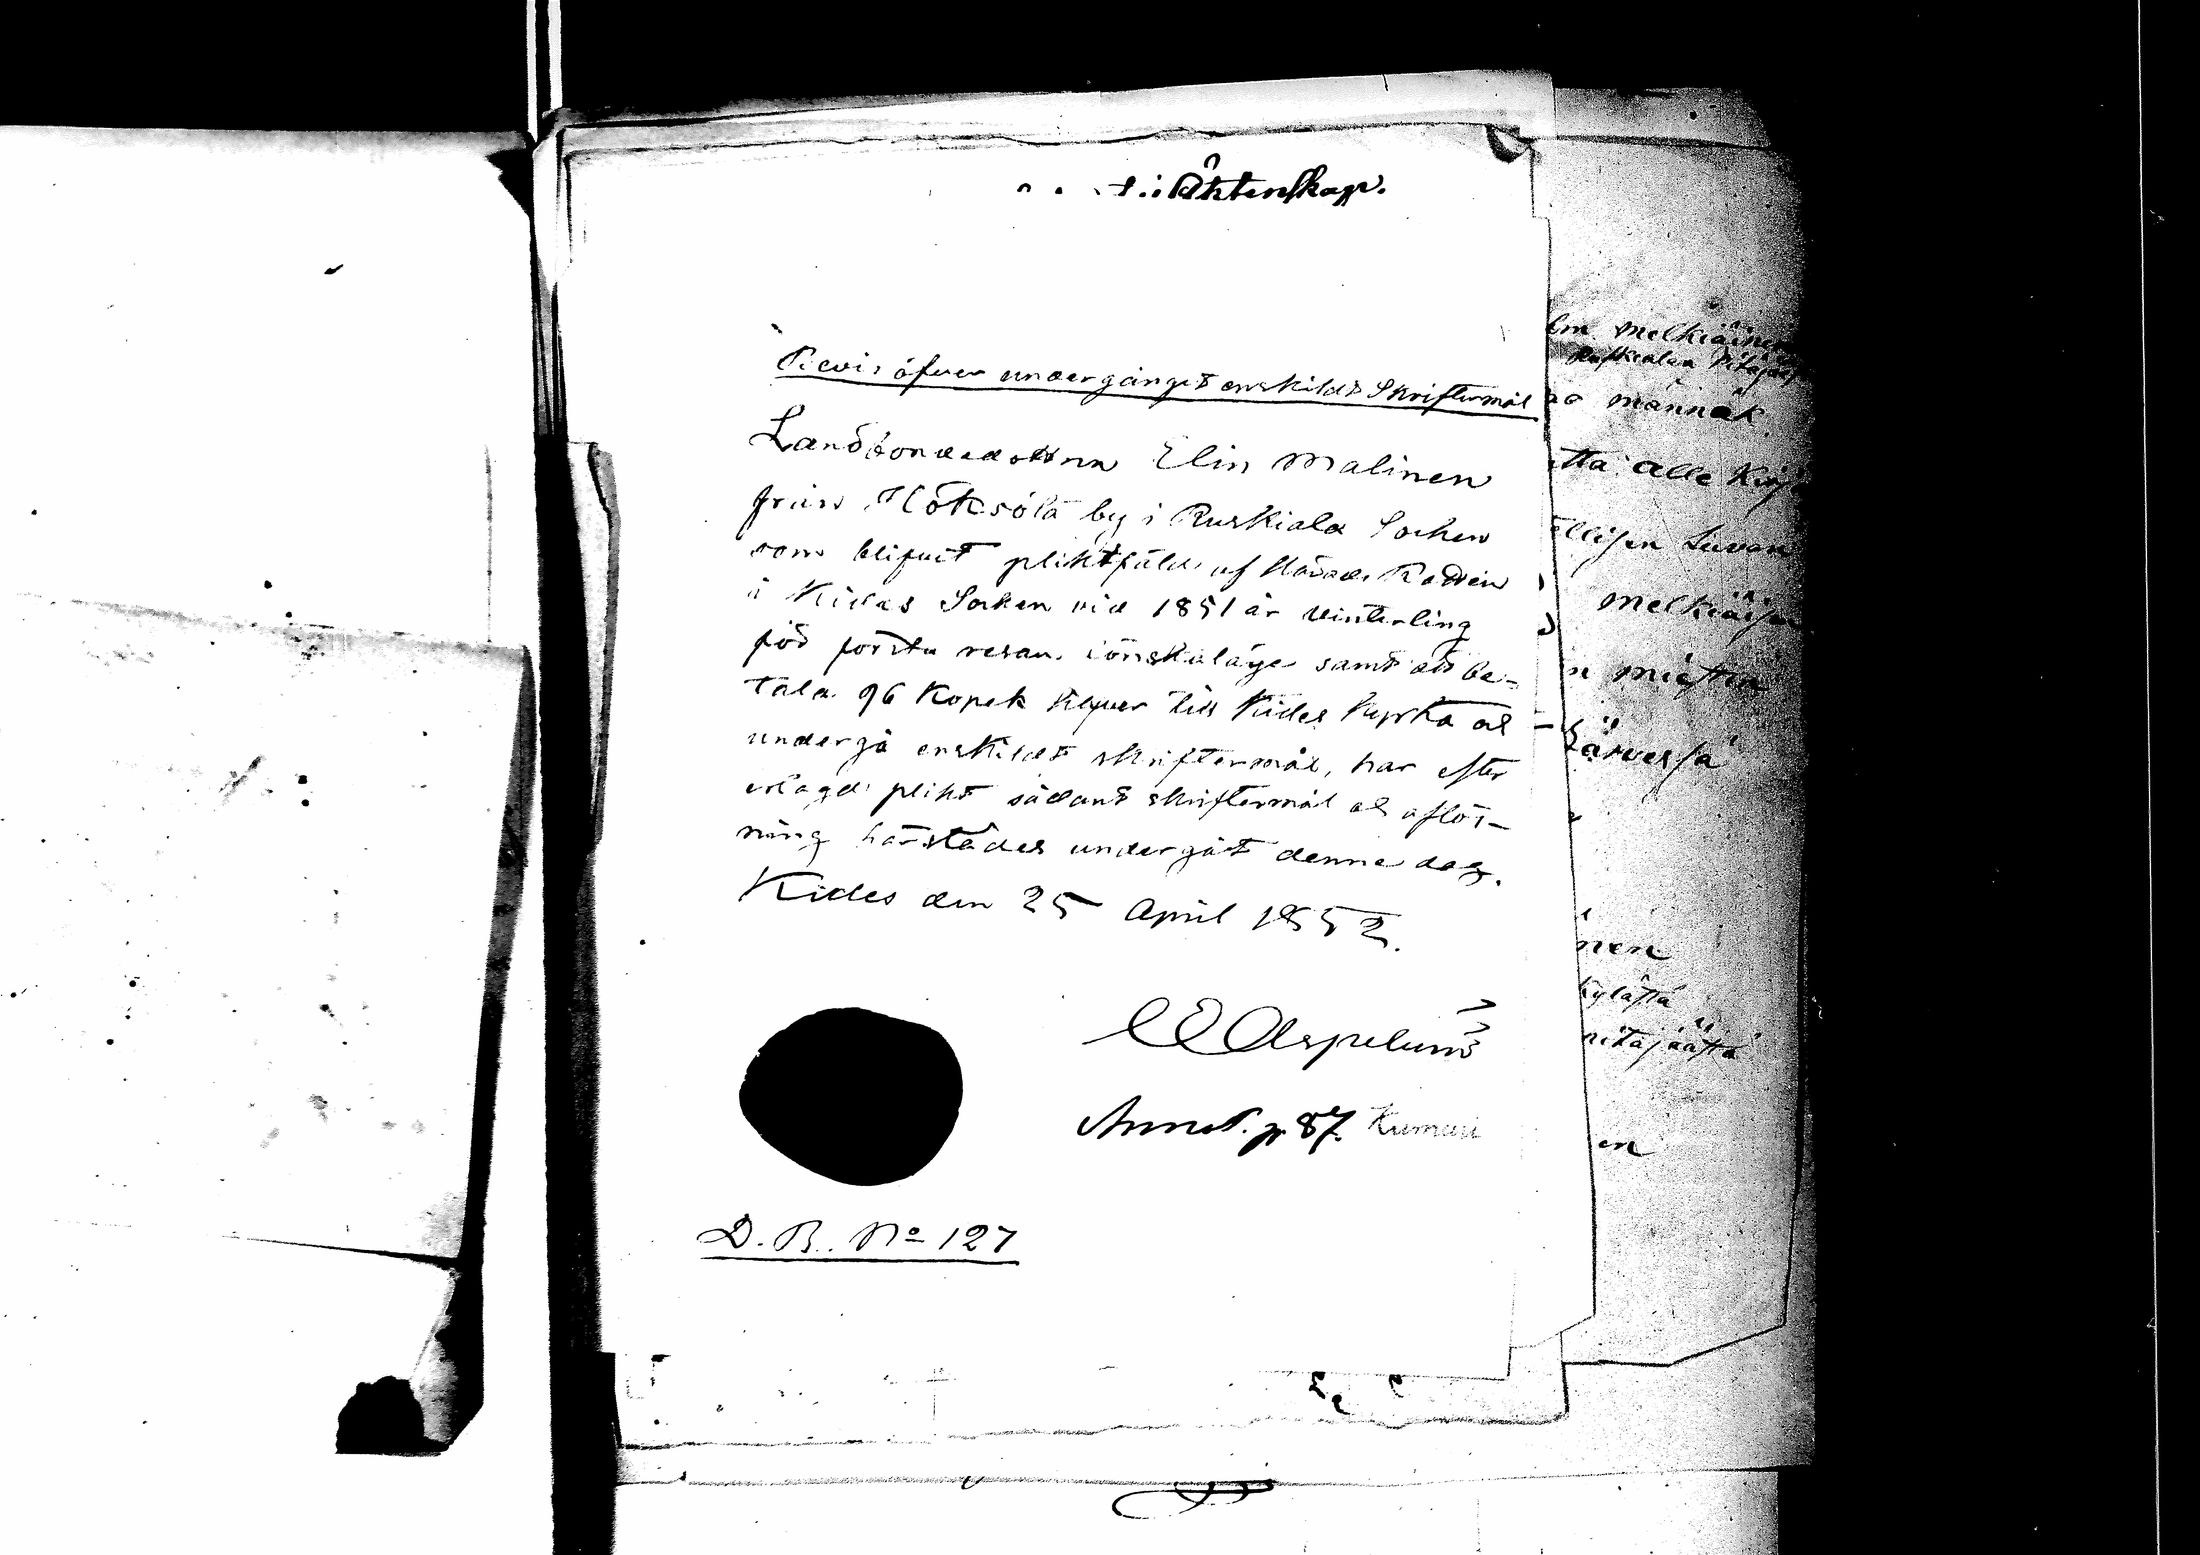 i Äktenskap.
Bevis öfver undergånget enskildt Skriftermål
Landbondedottren Elin Malinen
från Hötsölä by i Ruskiala Socken
som blifvit pliktfäld af Härads Rätten
i Kides Socken vid 1851 år Vinterting
för första resan lönskaläge samt att be-
tala 96 Kopek Silfver till Kides Kyrka och
undergå enskildt skriftermål, har efter
erlagd plikt sådant skriftermål och aflös-
ning härstädes undergått denne dag.
Kides den 25 April 1852.
C E Aspelund
Annot. p. 87. Kumuri
D. B. No 127
Melkiäinen
Ruskealan Pitäjä
männäk
tta alle Kirj
ellisen Luvan
Melkiäisen
n miesten
järvessä
nen
kylästä
pitäjäästä
en